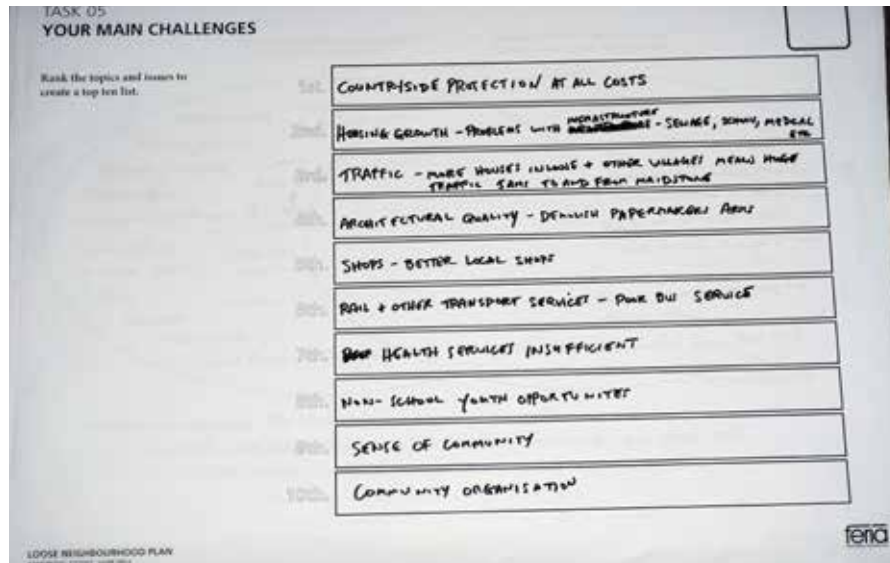 TASK 05
YOUR MAIN CHALLENGES
Rank the topics and issues to
create a top ten list.
1st.
COUNTRYSIDE PROTECTION AT ALL COSTS
2nd.
INFRASTRUCTURE
HOUSING GROWTH - PROBLEMS WITH - SEWAGE, SCHOOL, MEDICAL
ETC
3rd.
TRAFFIC - MORE HOUSES IN LOOSE + OTHER VILLAGES MEANS HUGE
TRAFFIC JAMS TO AND FROM MAIDSTONE
4th.
ARCHITECTURAL QUALITY - DEMOLISH PAPERMAKERS ARMS
5th.
SHOPS - BETTER LOCAL SHOPS
6th.
RAIL + OTHER TRANSPORT SERVICES - POOR BUS SERVICE
7th.
HEALTH SERVICES INSUFFICIENT
8th.
NON-SCHOOL YOUTH OPPORTUNITES
9th.
SENSE OF COMMUNITY
10th.
COMMUNITY ORGANISATION
LOOSE NEIGHBOURHOOD PLAN
feria